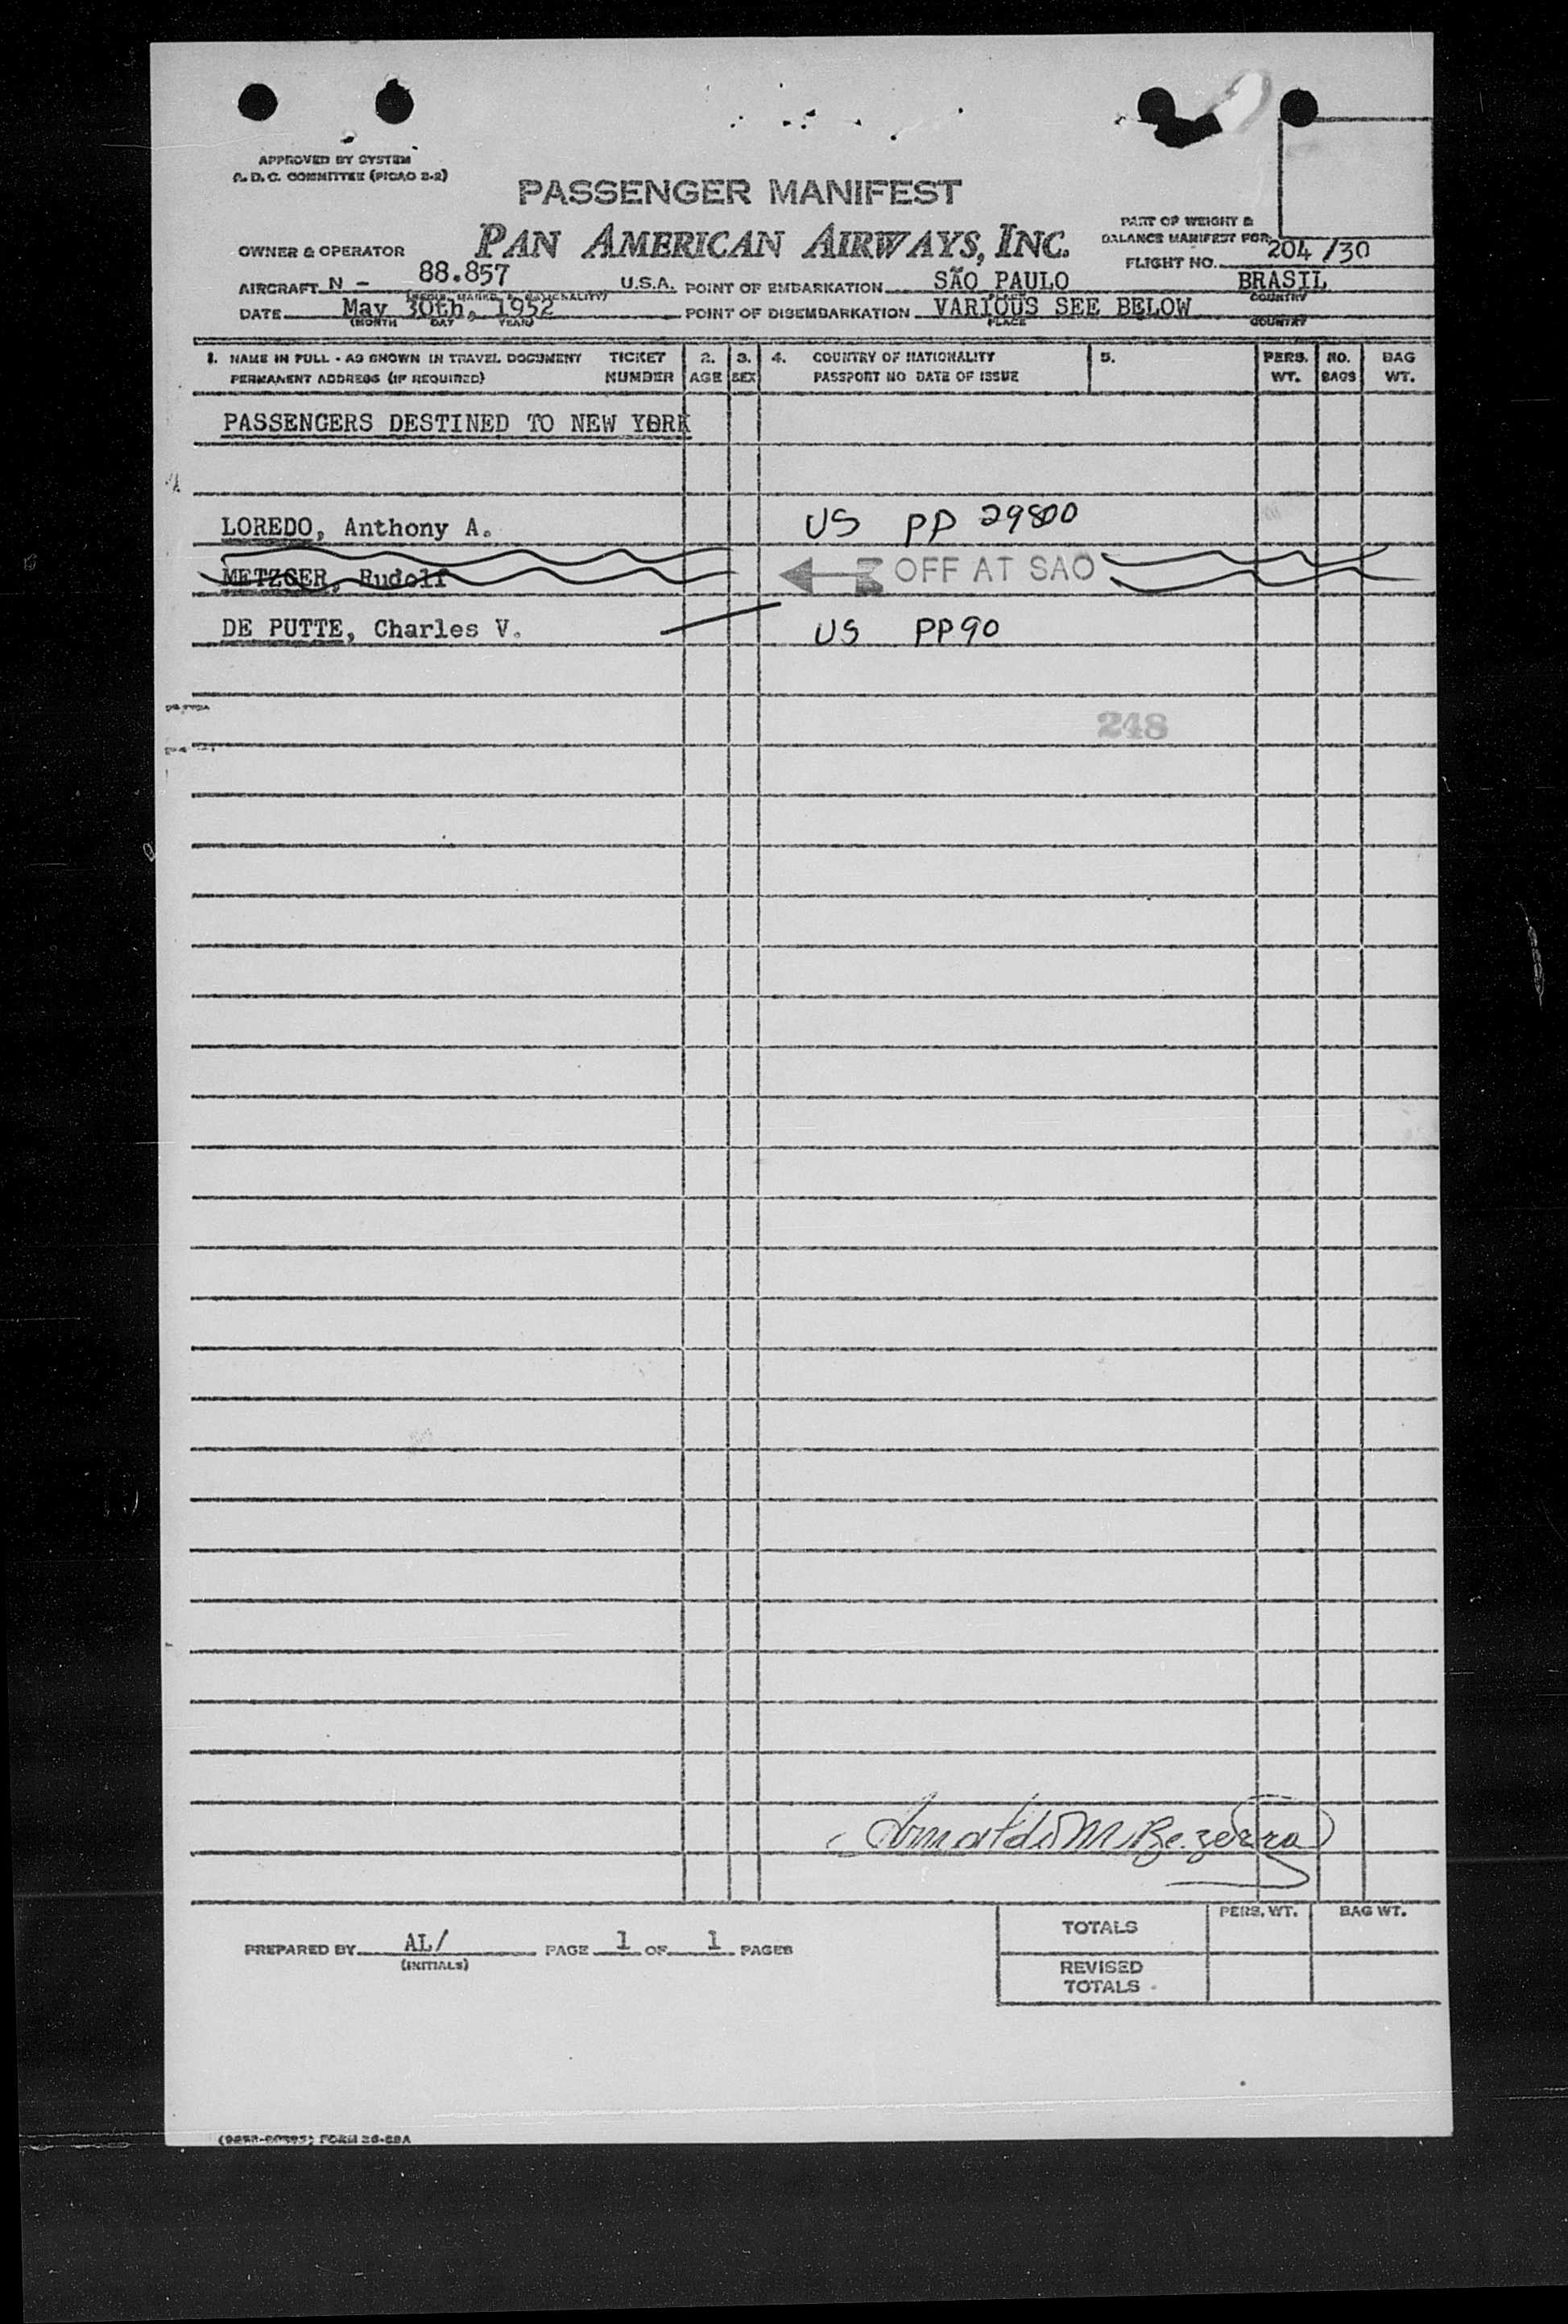 APPROVED BY SYSTEM
A. D. C. COMMITTEE (PICAO 2-2)
PASSENGER MANIFEST
PAN AMERICAN AIRWAYS, INC.
OWNER & OPERATOR
PART OF WEIGHT &
BALANCE MANIFEST FOR
FLIGHT NO. 204/30
AIRCRAFT N - 88.857 U.S.A. POINT OF EMBARKATION SÃO PAULO BRASIL
COUNTRY
DATE May 30th, 1952 POINT OF DISEMBARKATION VARIOUS SEE BELOW
(MONTH DAY YEAR) PLACE COUNTRY
1. NAME IN FULL - AS SHOWN IN TRAVEL DOCUMENT TICKET 2. 3. 4. COUNTRY OF NATIONALITY 5. PERS. NO. BAG
PERMANENT ADDRESS (IF REQUIRED) NUMBER AGE SEX PASSPORT NO DATE OF ISSUE WT. BAGS WT.
PASSENGERS DESTINED TO NEW YORK
LOREDO, Anthony A. US PP 29800
METZGER, Rudolf OFF AT SAO
DE PUTTE, Charles V. US PP90
248
Arnaldo M. Bezerra
PREPARED BY AL/ PAGE 1 OF 1 PAGES
(INITIALS)
TOTALS PERS. WT. BAG WT.
REVISED
TOTALS
FORM 26-68A